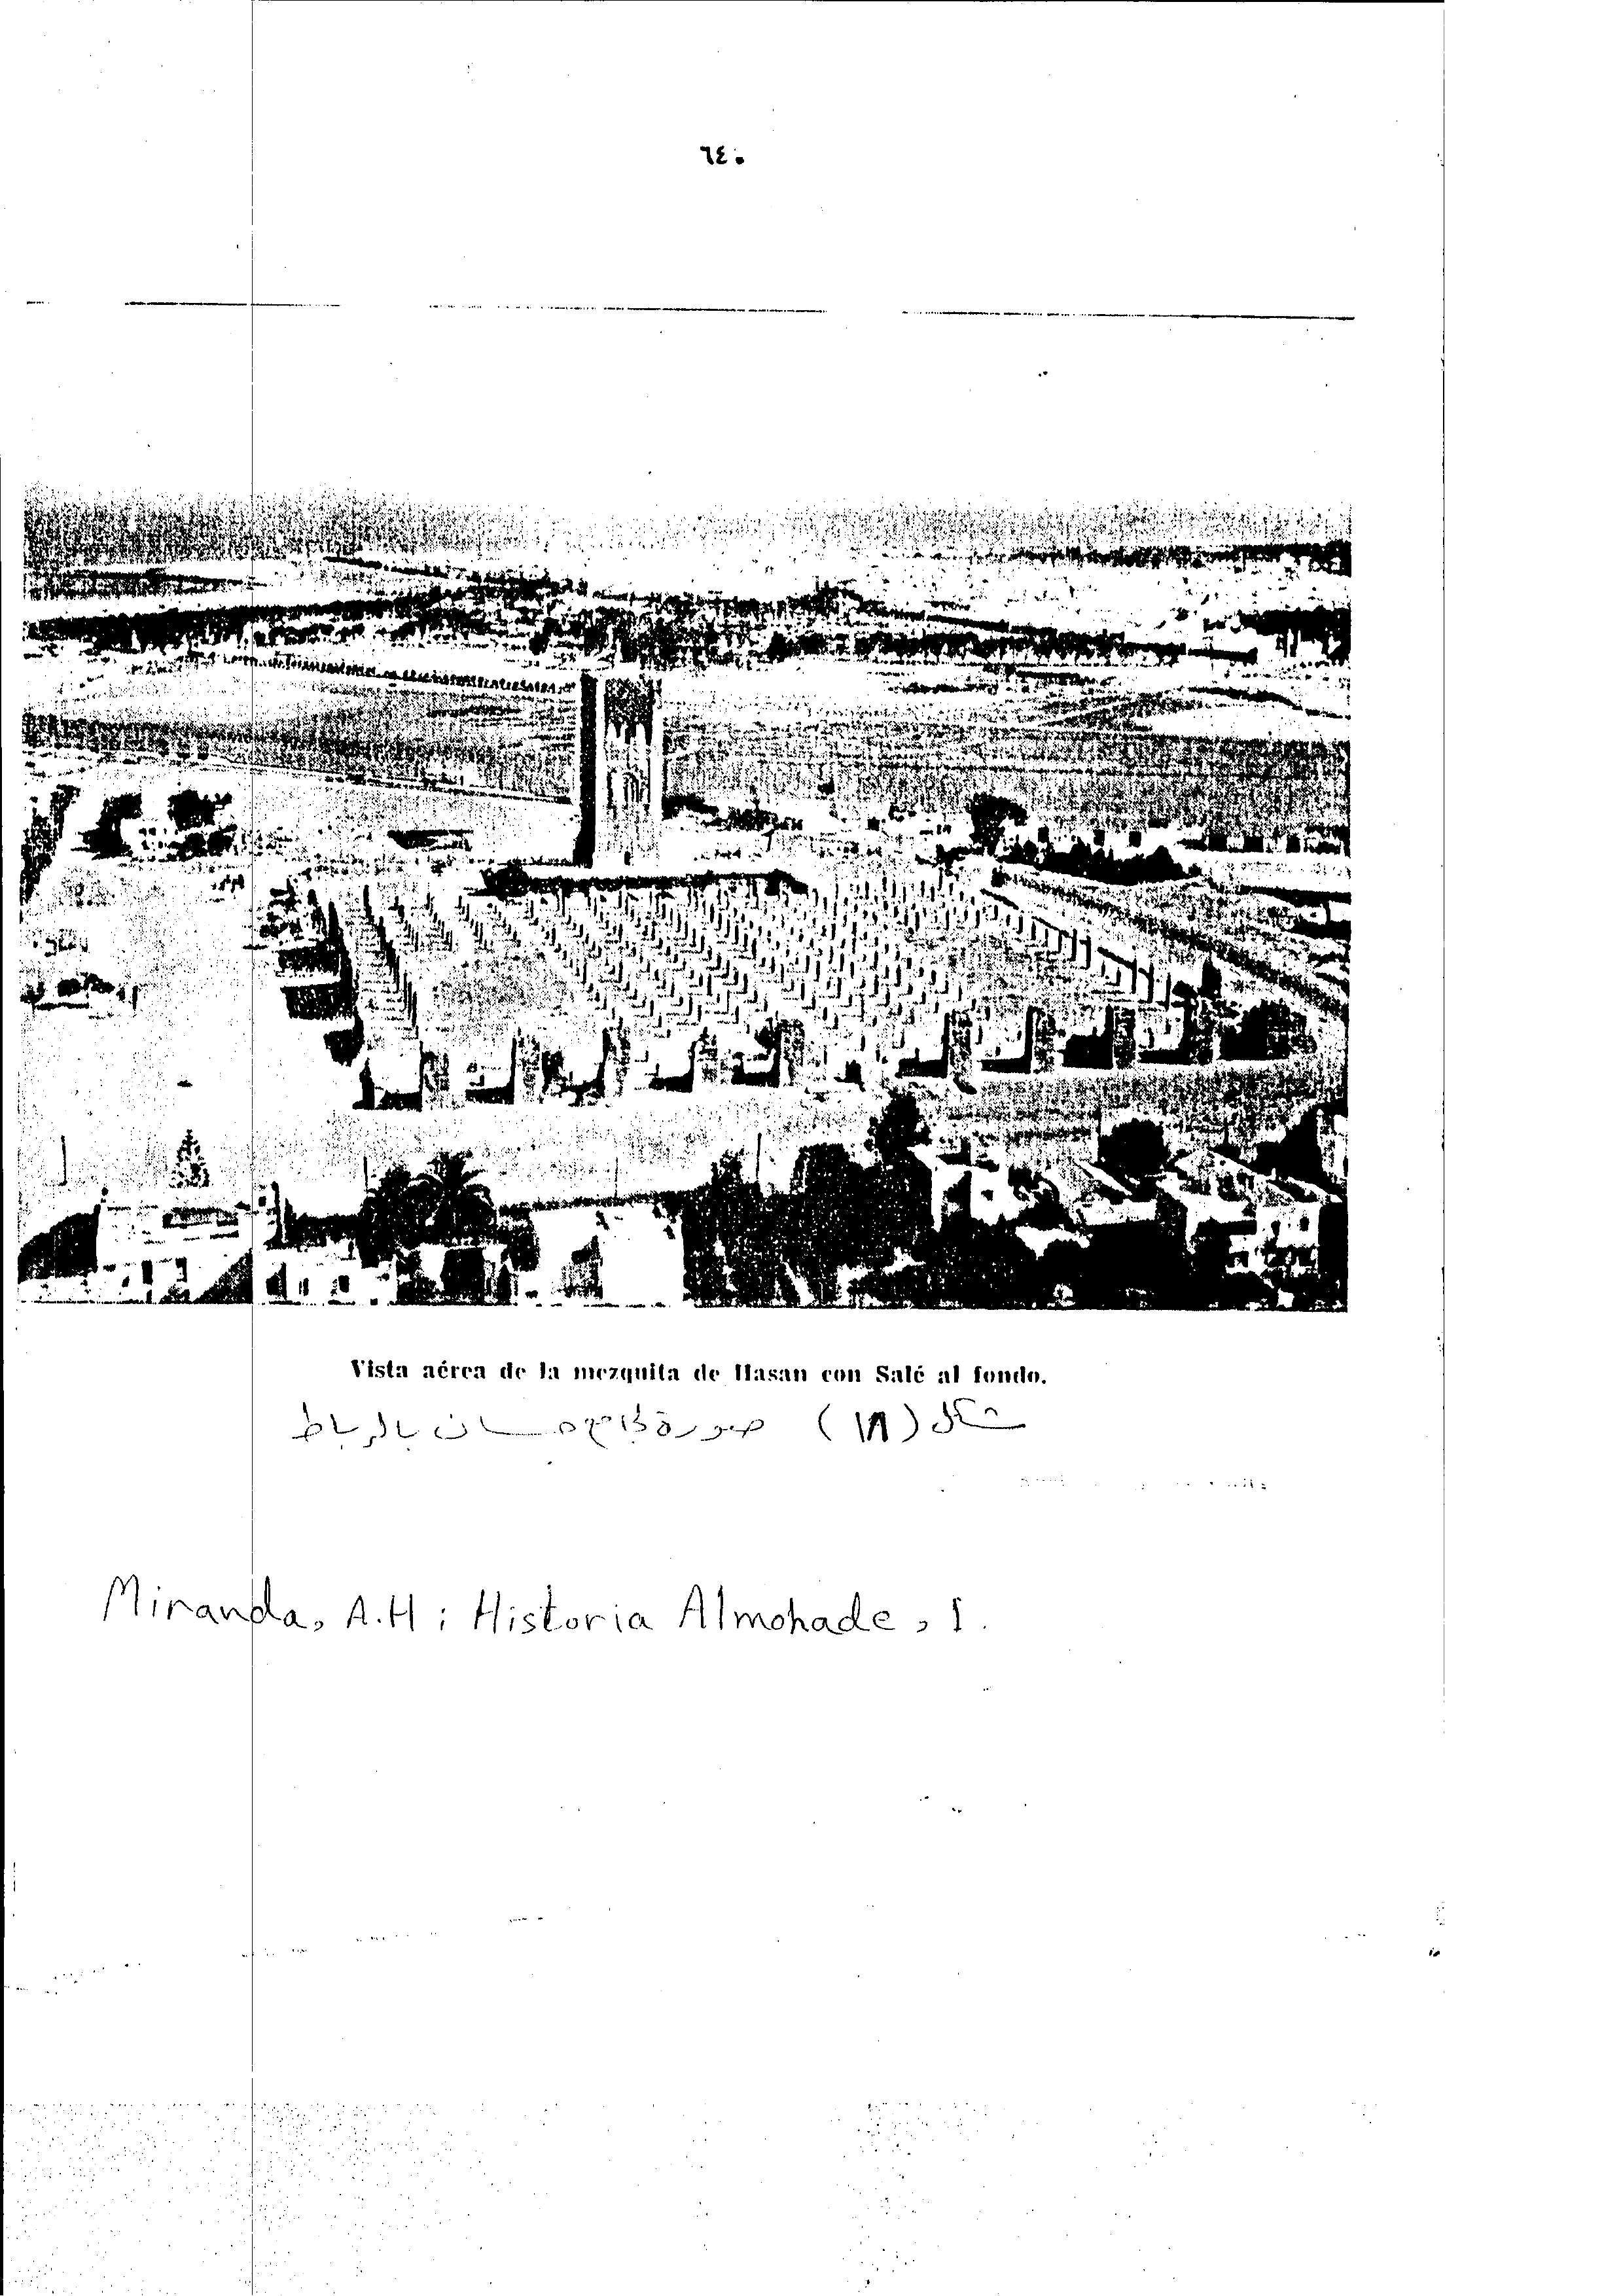 ٦٤٠
Vista aérea de la mezquita de Hasan con Salé al fondo.
شكل (١٨) صورة لجامع حسان بالرباط
Miranda, A.H : Historia Almohade , I.